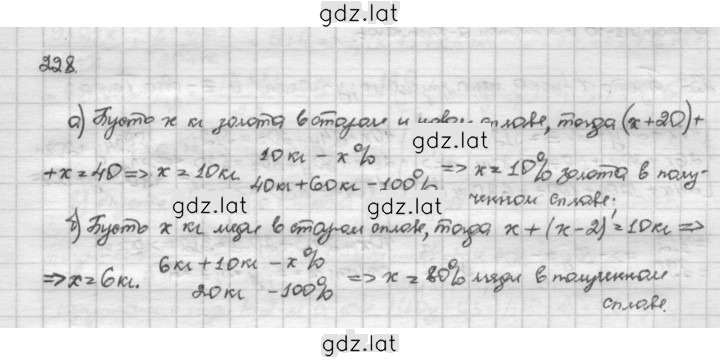 gdz.lat
228.
а) Пусть x кг золота в втором и новом сплаве, тогда (x+20)+
gdz.lat
+x=40 => x=10кг. 10кг - x% => x=10% золота в полу-
40кг+60кг - 100% ченном сплаве.
gdz.lat gdz.lat
б) Пусть x кг меди в втором сплаве, тогда x+(x-2)=10кг =>
=> x=6кг. 6кг+10кг - x% => x=80% меди в полученном
20кг - 100% сплаве.
gdz.lat